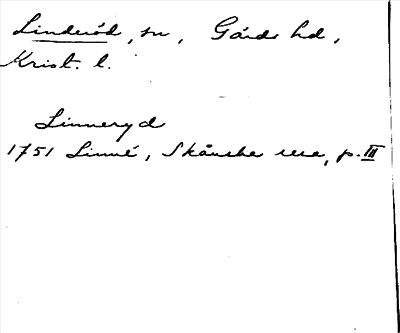 Linderöd, sn, Gärds hd,
Krist. l.
Linneryd
1751 Linné, Skånska resa, p. III